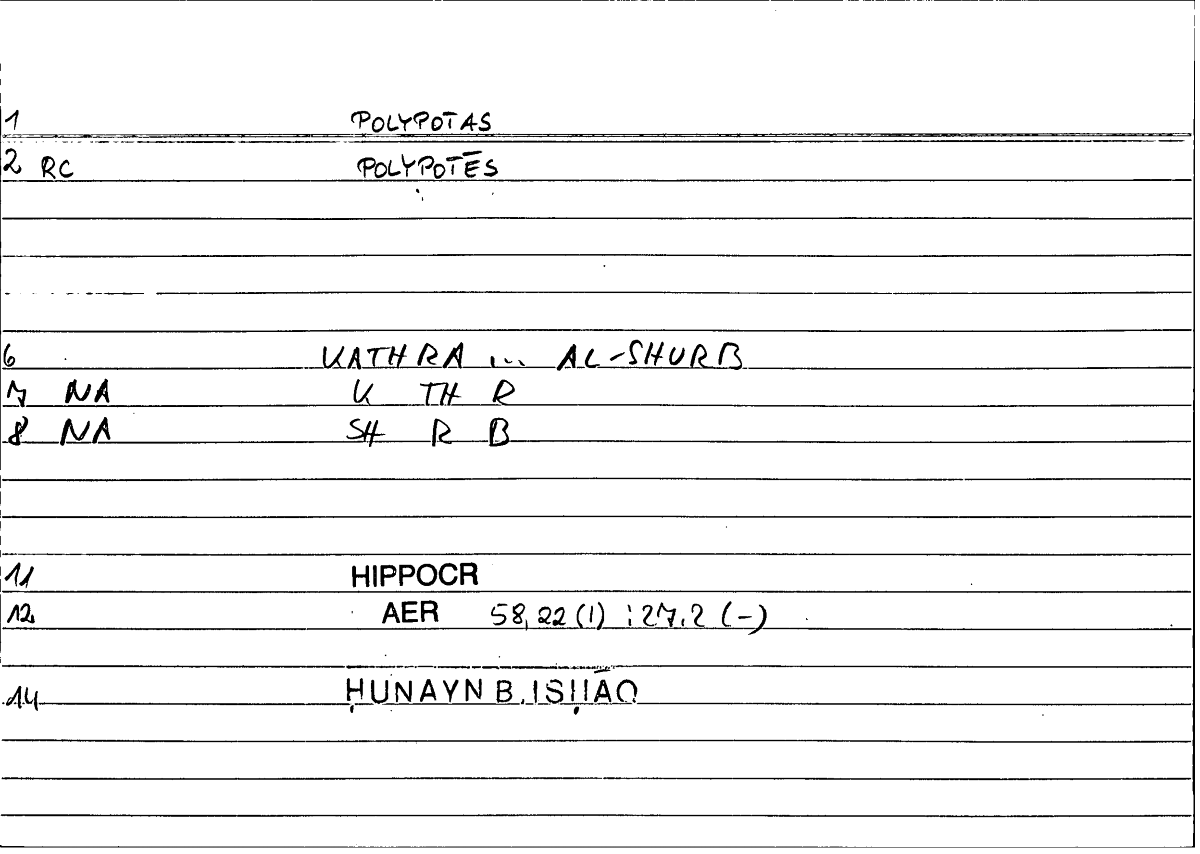 1 POLYPOTAS
2 RC POLYPOTĒS
6 KATHRA ... AL-SHURB
7 NA K TH R
8 NA SH R B
11 HIPPOCR
12 AER 58,22 (1) ; 27,2 (-)
14 ḤUNAYN B. ISḤĀQ